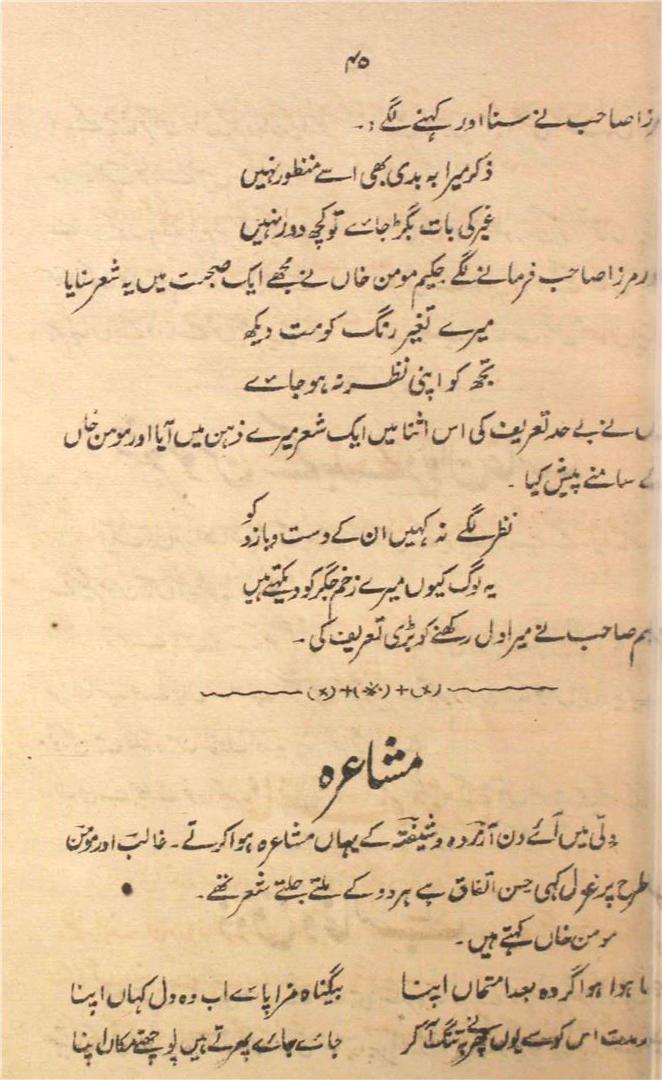 ۴۵
مرزا صاحب نے سنا اور کہنے لگے :۔
ذکر میرا بہ بدی بھی اسے منظور نہیں
غیر کی بات بگڑ جائے تو کچھ دور نہیں
اور مرزا صاحب فرمانے لگے حکیم مومن خاں نے مجھے ایک صحبت میں یہ شعر سنایا
میرے تغیر رنگ کو مت دیکھ
تجھ کو اپنی نظر نہ ہو جائے
نے بے حد تعریف کی اس اثنا میں ایک شعر میرے ذہن میں آیا اور مومن خاں
کے سامنے پیش کیا ۔
نظر لگے نہ کہیں ان کے دست و بازو کو
یہ لوگ کیوں میرے زخم جگر کو دیکھتے ہیں
صاحب نے میرا دل رکھنے کو بڑی تعریف کی ۔
(×)+(※)+(×)
مشاعرہ
دلّی میں آئے دن آزردہ و شیفتہ کے یہاں مشاعرہ ہوا کرتے ۔ غالب اور مومن
طرح پر غزل کہی حسن اتفاق ہے ہر دو کے ملتے جلتے شعر تھے ۔
مومن خاں کہتے ہیں ۔
ہوا ہوا گر وہ بعد امتحاں اپنا بیگناہ سزا پائے اب وہ دل کہاں اپنا
اس کو سے یوں پھرنے پر تنگ آ کر جائے جائے پھرتے ہیں پوچھتے مکاں اپنا